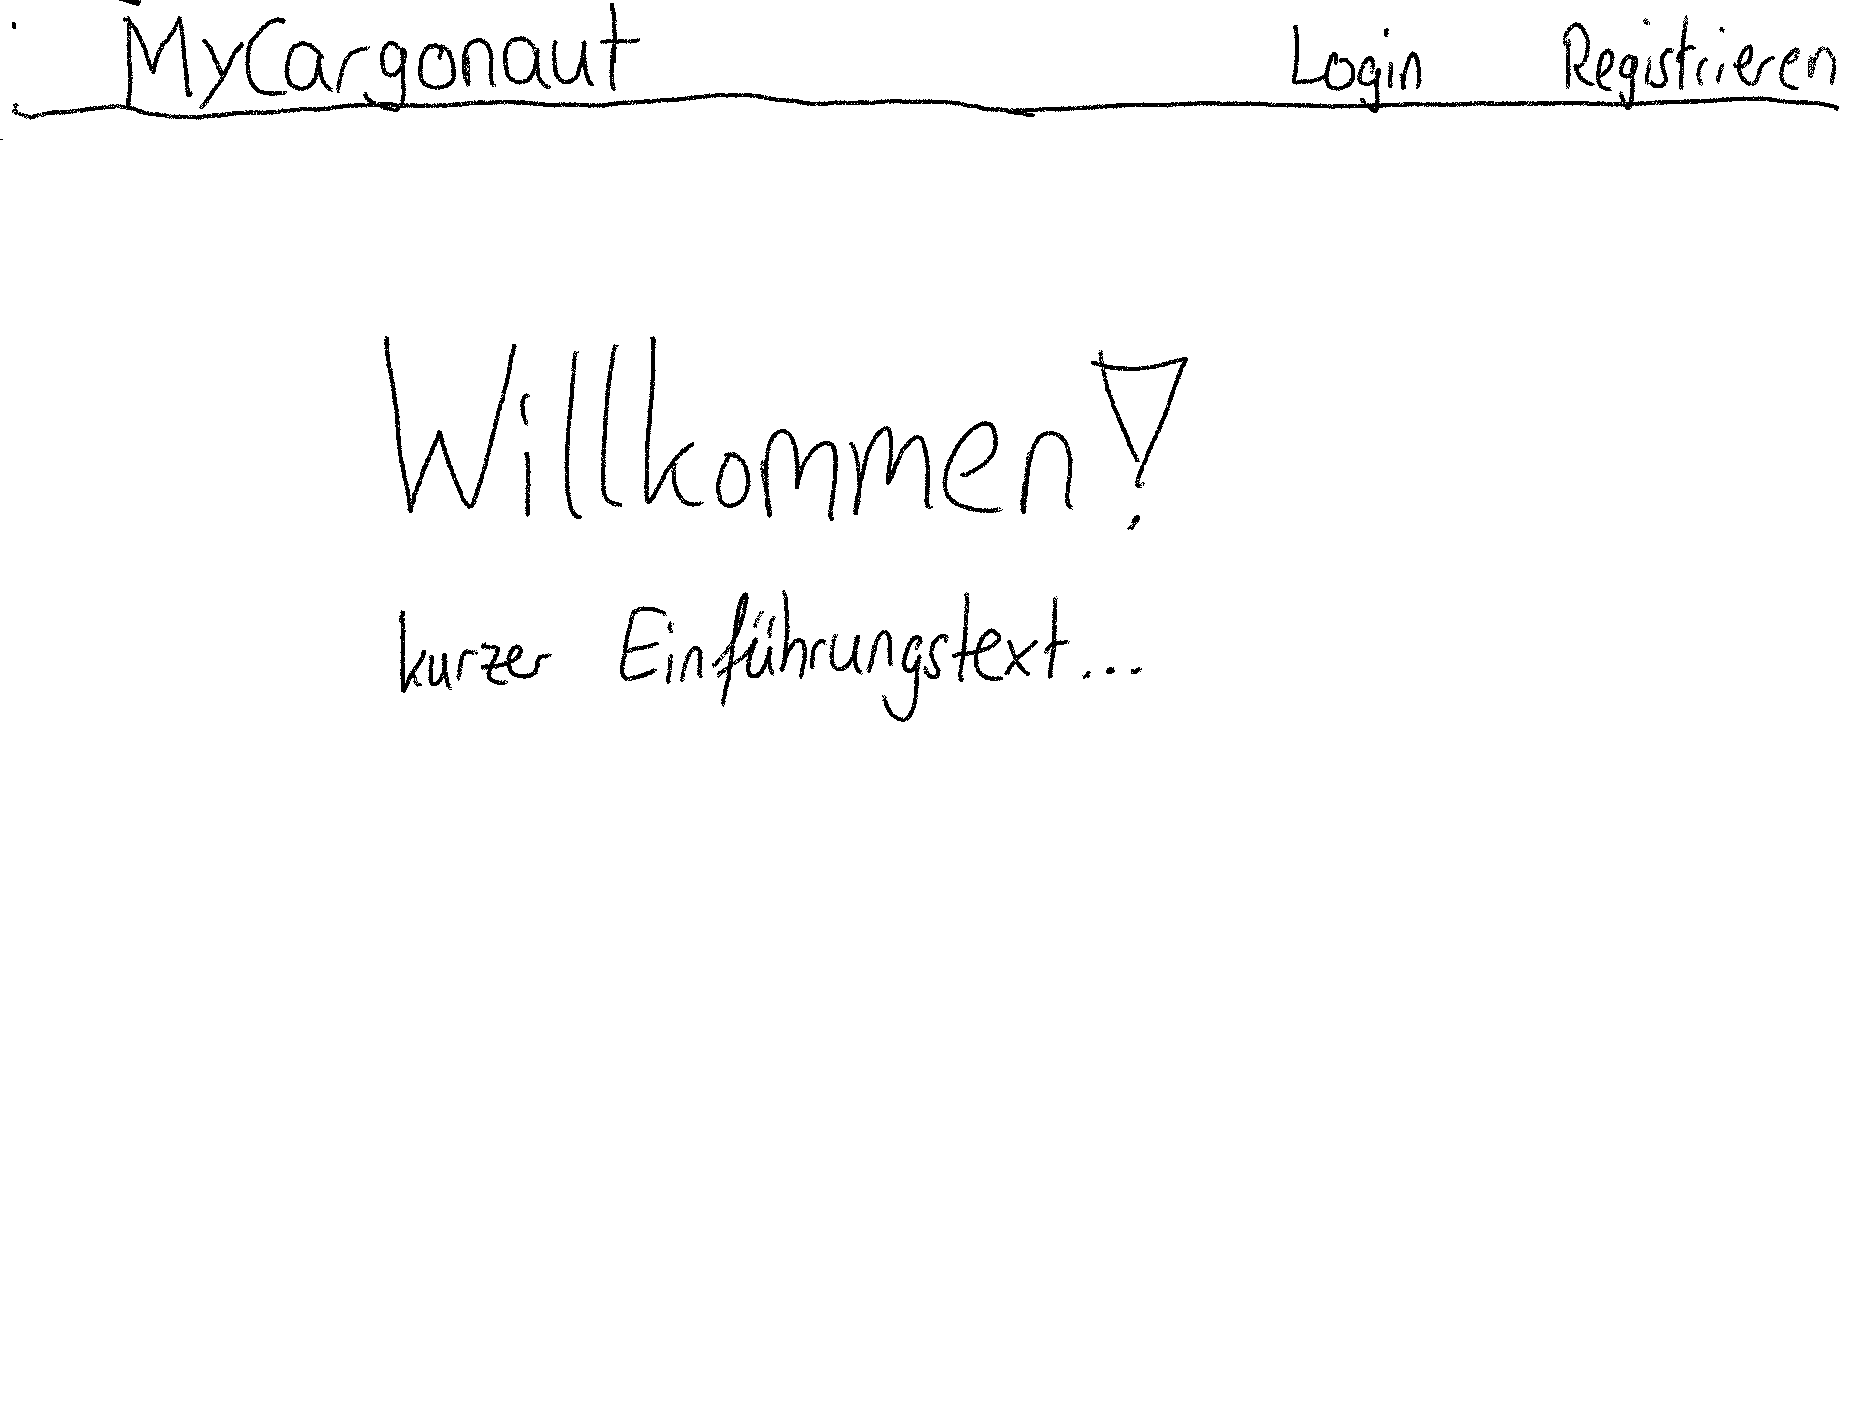 MyCargonaut Login Registrieren
Willkommen!
kurzer Einführungstext...